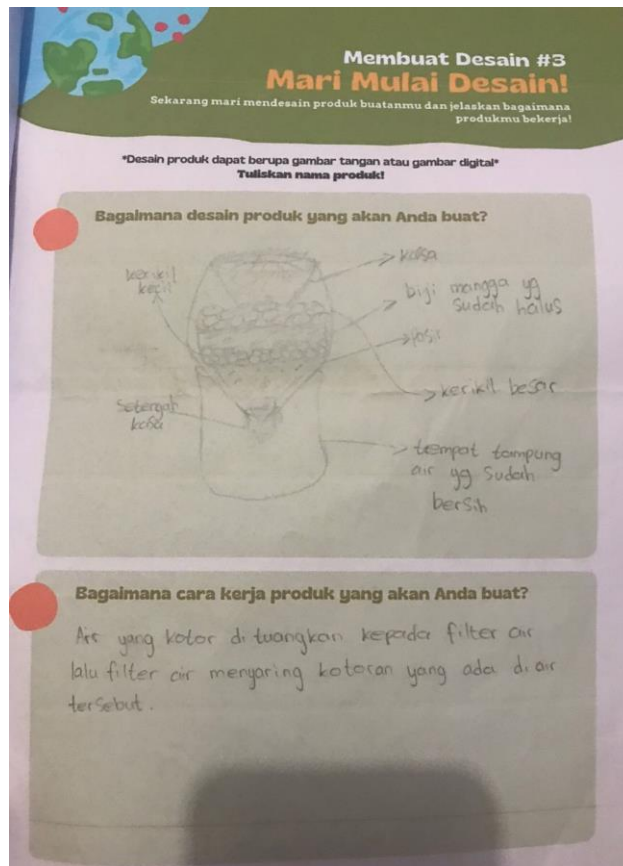 Membuat Desain #3
Mari Mulai Desain!
Sekarang mari mendesain produk buatanmu dan jelaskan bagaimana
produkmu bekerja!
*Desain produk dapat berupa gambar tangan atau gambar digital*
Tuliskan nama produk!
Bagaimana desain produk yang akan Anda buat?
kerikil
kecil
kassa
biji mangga yg
sudah halus
pasir
kerikil besar
Setengah
tempat tampung
air yg sudah
bersih
Bagaimana cara kerja produk yang akan Anda buat?
Air yang kotor dituangkan kepada filter air
lalu filter air menyaring kotoran yang ada di air
tersebut.